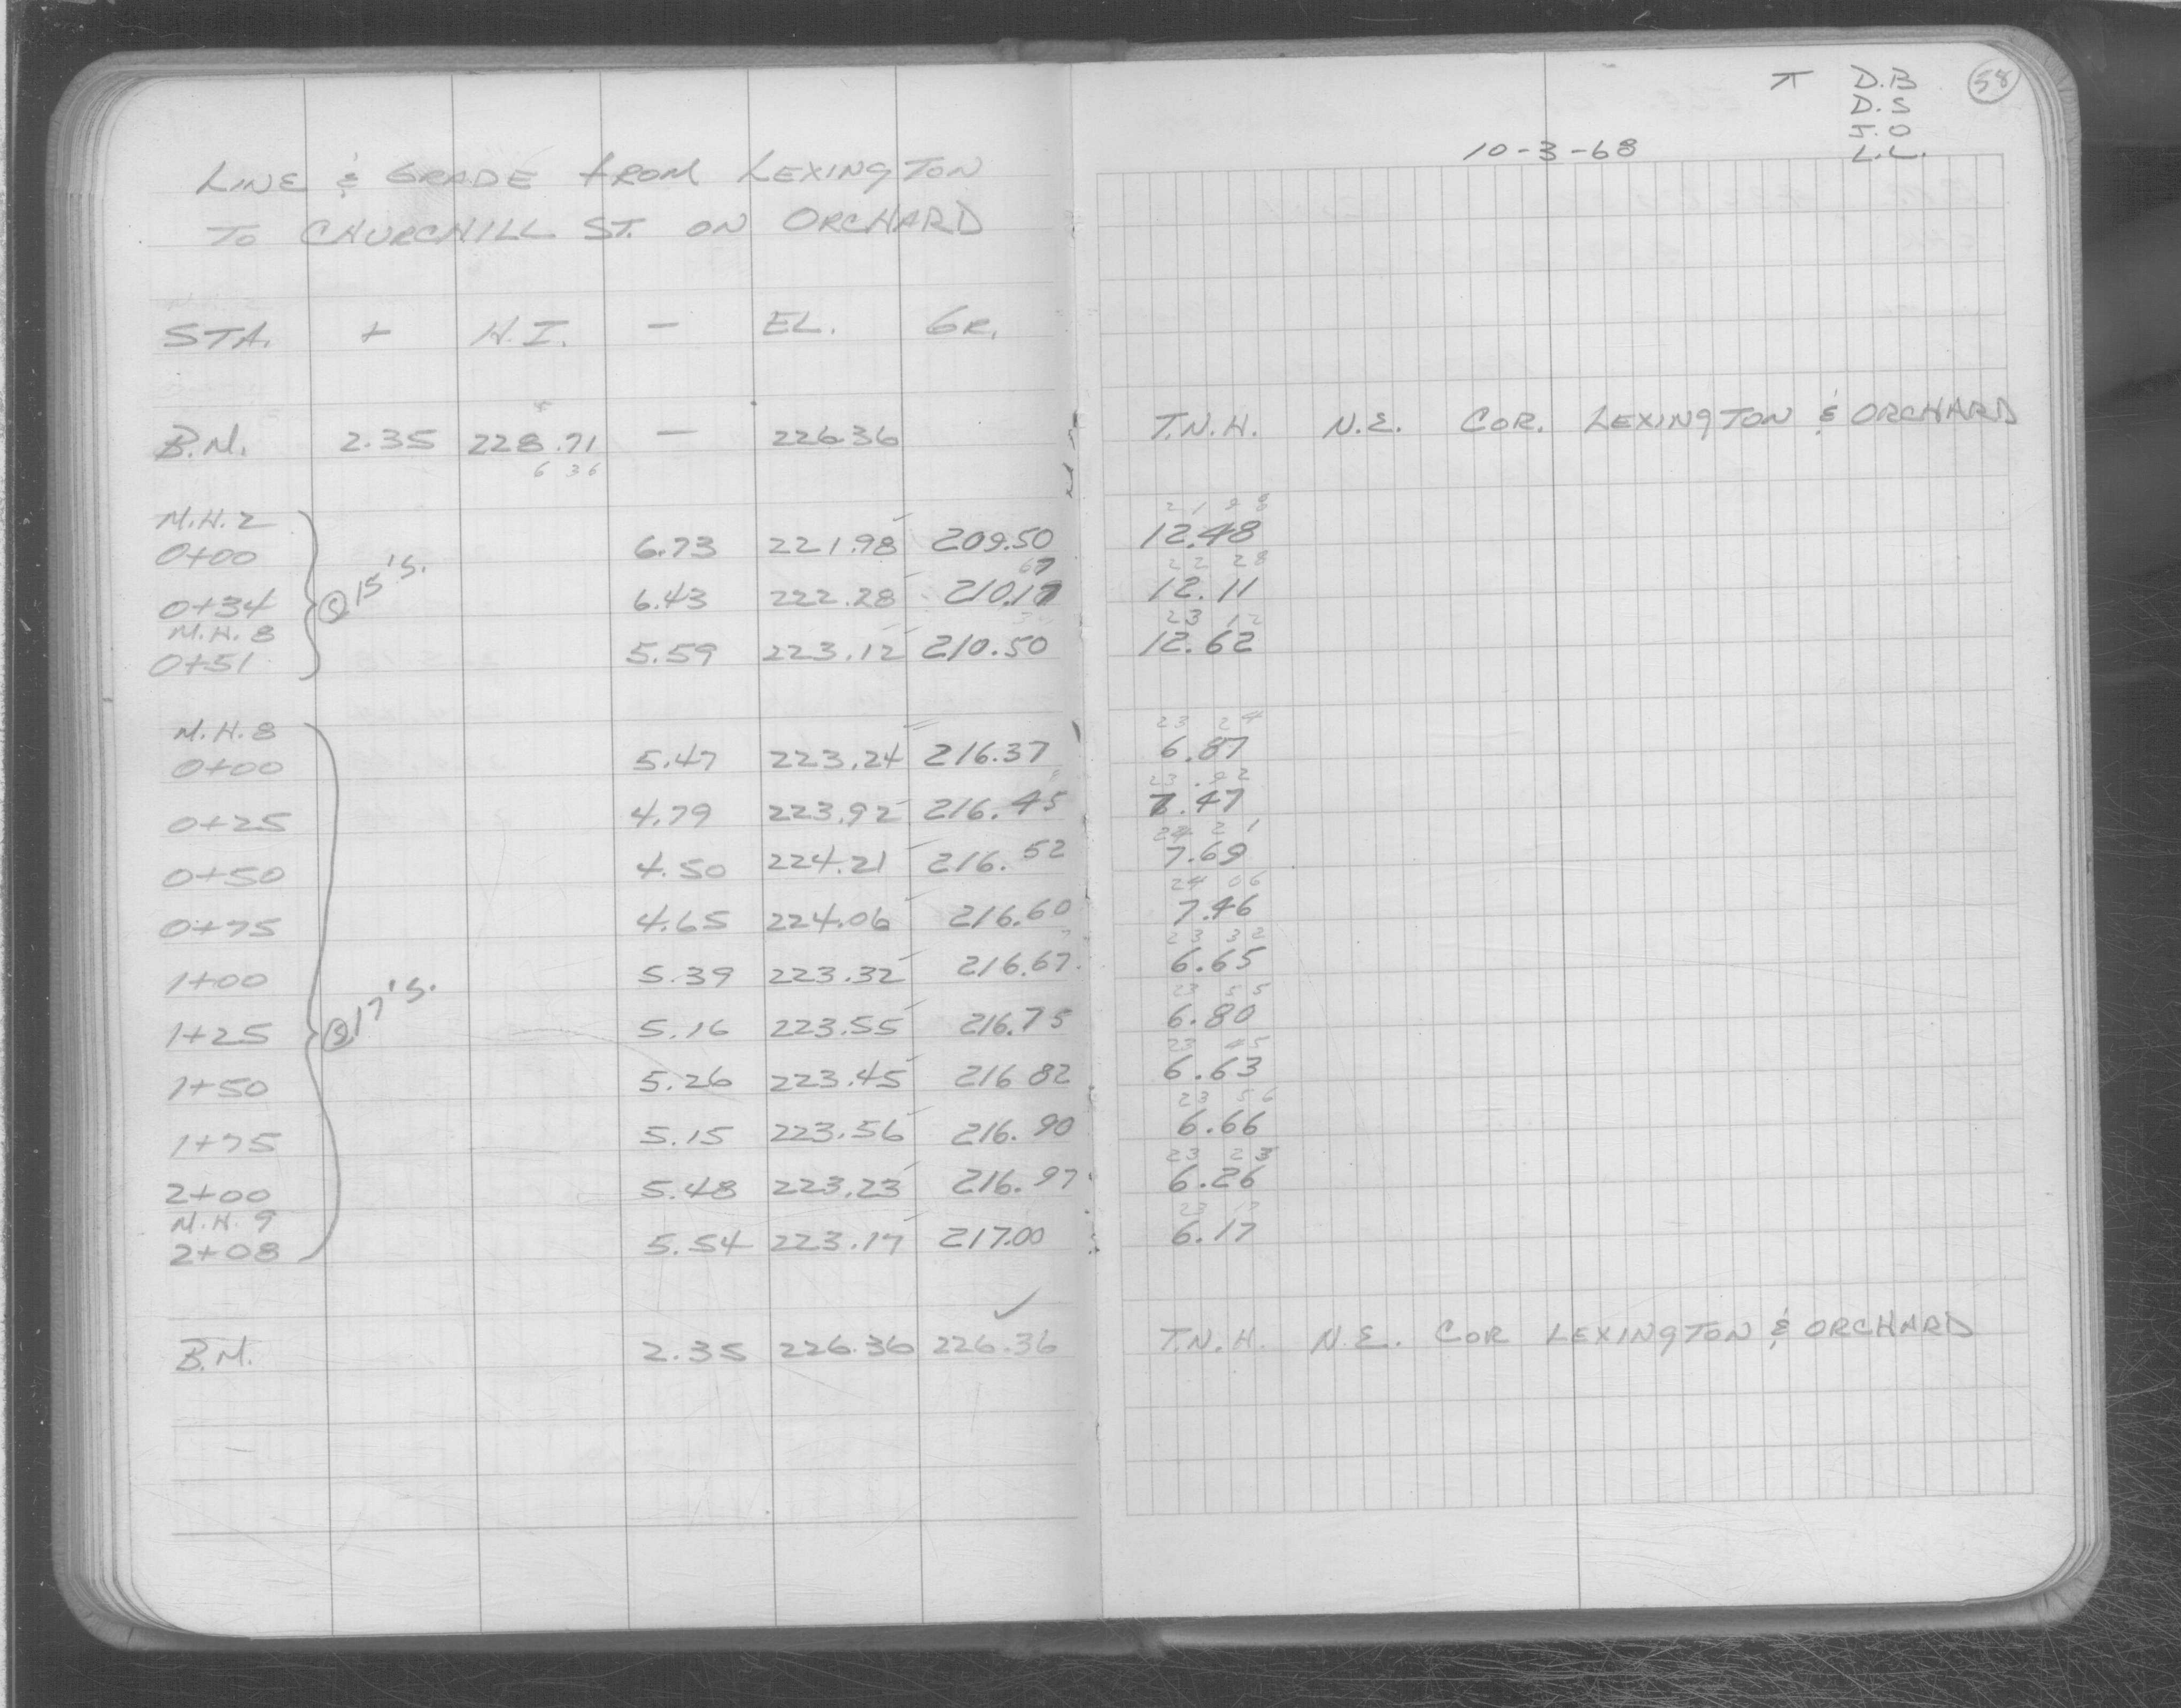 LINE & GRADE FROM LEXINGTON
TO CHURCHILL ST. ON ORCHARD
STA. + H.I. — EL. GR.
B.M. 2.35 228.71 — 226.36
6 36
M.H. 2
0+00 6.73 221.98 209.50
0+34 6.43 222.28 210.17
M.H. 8
0+51 5.59 223.12 210.50
@ 15's.
M.H. 8
0+00 5.47 223.24 216.37
0+25 4.79 223.92 216.45
0+50 4.50 224.21 216.52
0+75 4.65 224.06 216.60
1+00 5.39 223.32 216.67
1+25 5.16 223.55 216.75
1+50 5.26 223.45 216 82
1+75 5.15 223.56 216.90
2+00 5.48 223.23 216.97
M.H. 9
2+08 5.54 223.17 217.00
@ 17's.
B.M. 2.35 226.36 226.36 ✓
π D.B 58
D.S
J.O
L.L.
10-3-68
T.N.H. N.E. COR. LEXINGTON & ORCHARD
21 98
12.48
22 28
12.11
23 12
12.62
23 24
6.87
23.92
7.47
24 21
7.69
24 06
7.46
23 32
6.65
23 55
6.80
23 45
6.63
23 56
6.66
23 23
6.26
6.17
T.N.H. N.E. COR LEXINGTON & ORCHARD